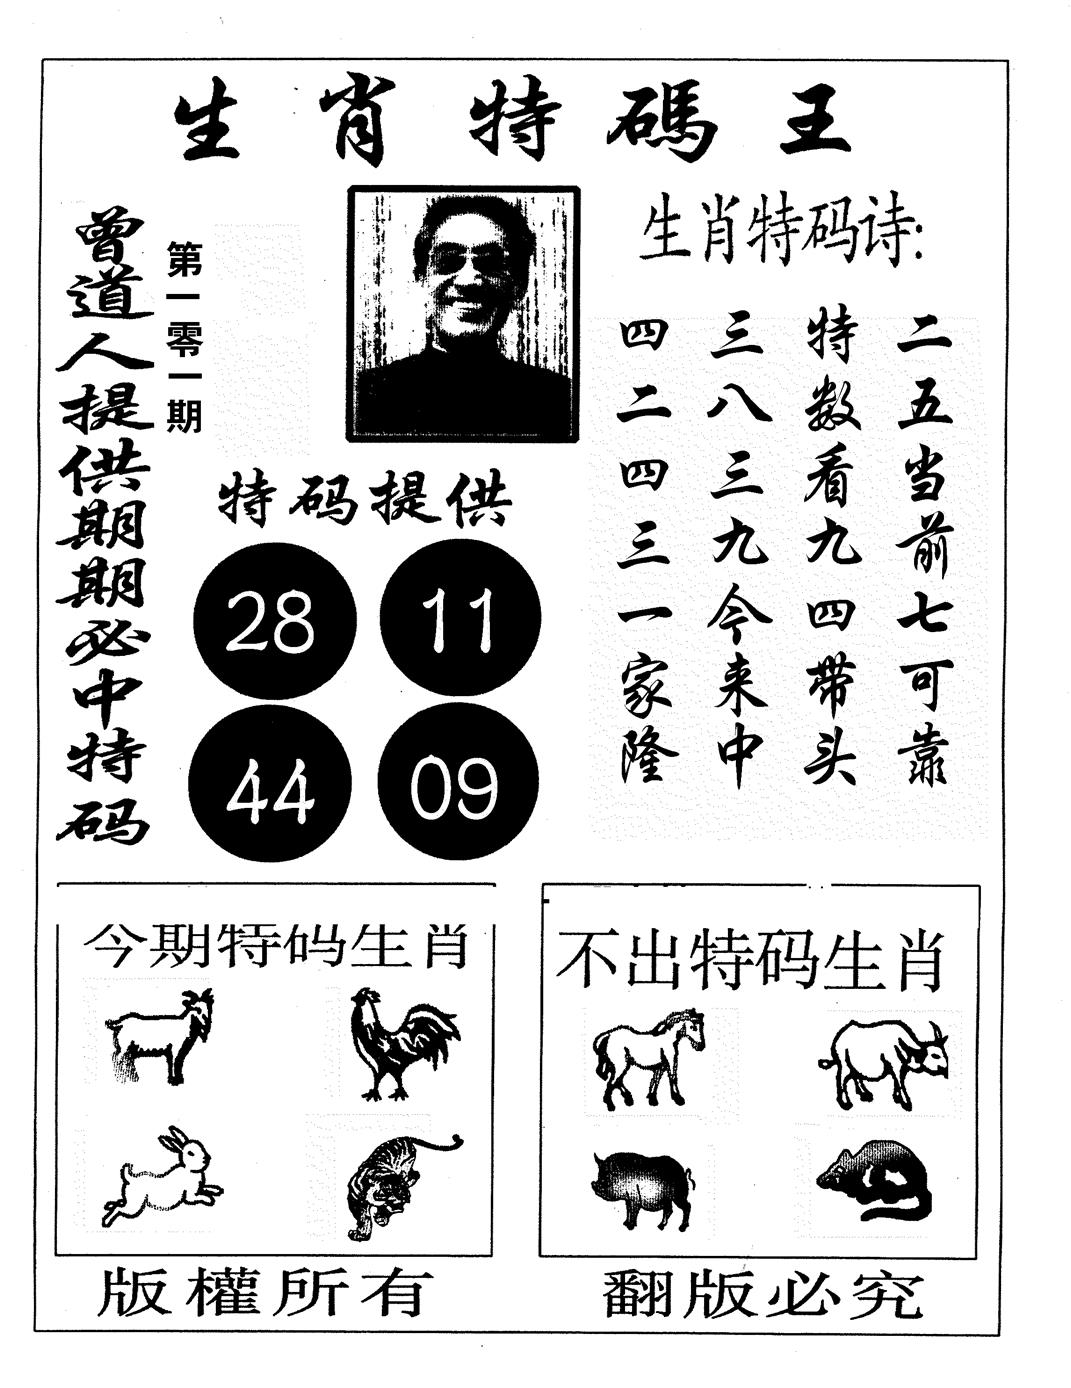 生肖特碼王
曾道人提供期期必中特码
第一零一期
生肖特码诗:
二五当前七可靠
特数看九四带头
三八三九今来中
四二四三一家隆
特码提供
28 11
44 09
今期特码生肖
不出特码生肖
版權所有
翻版必究